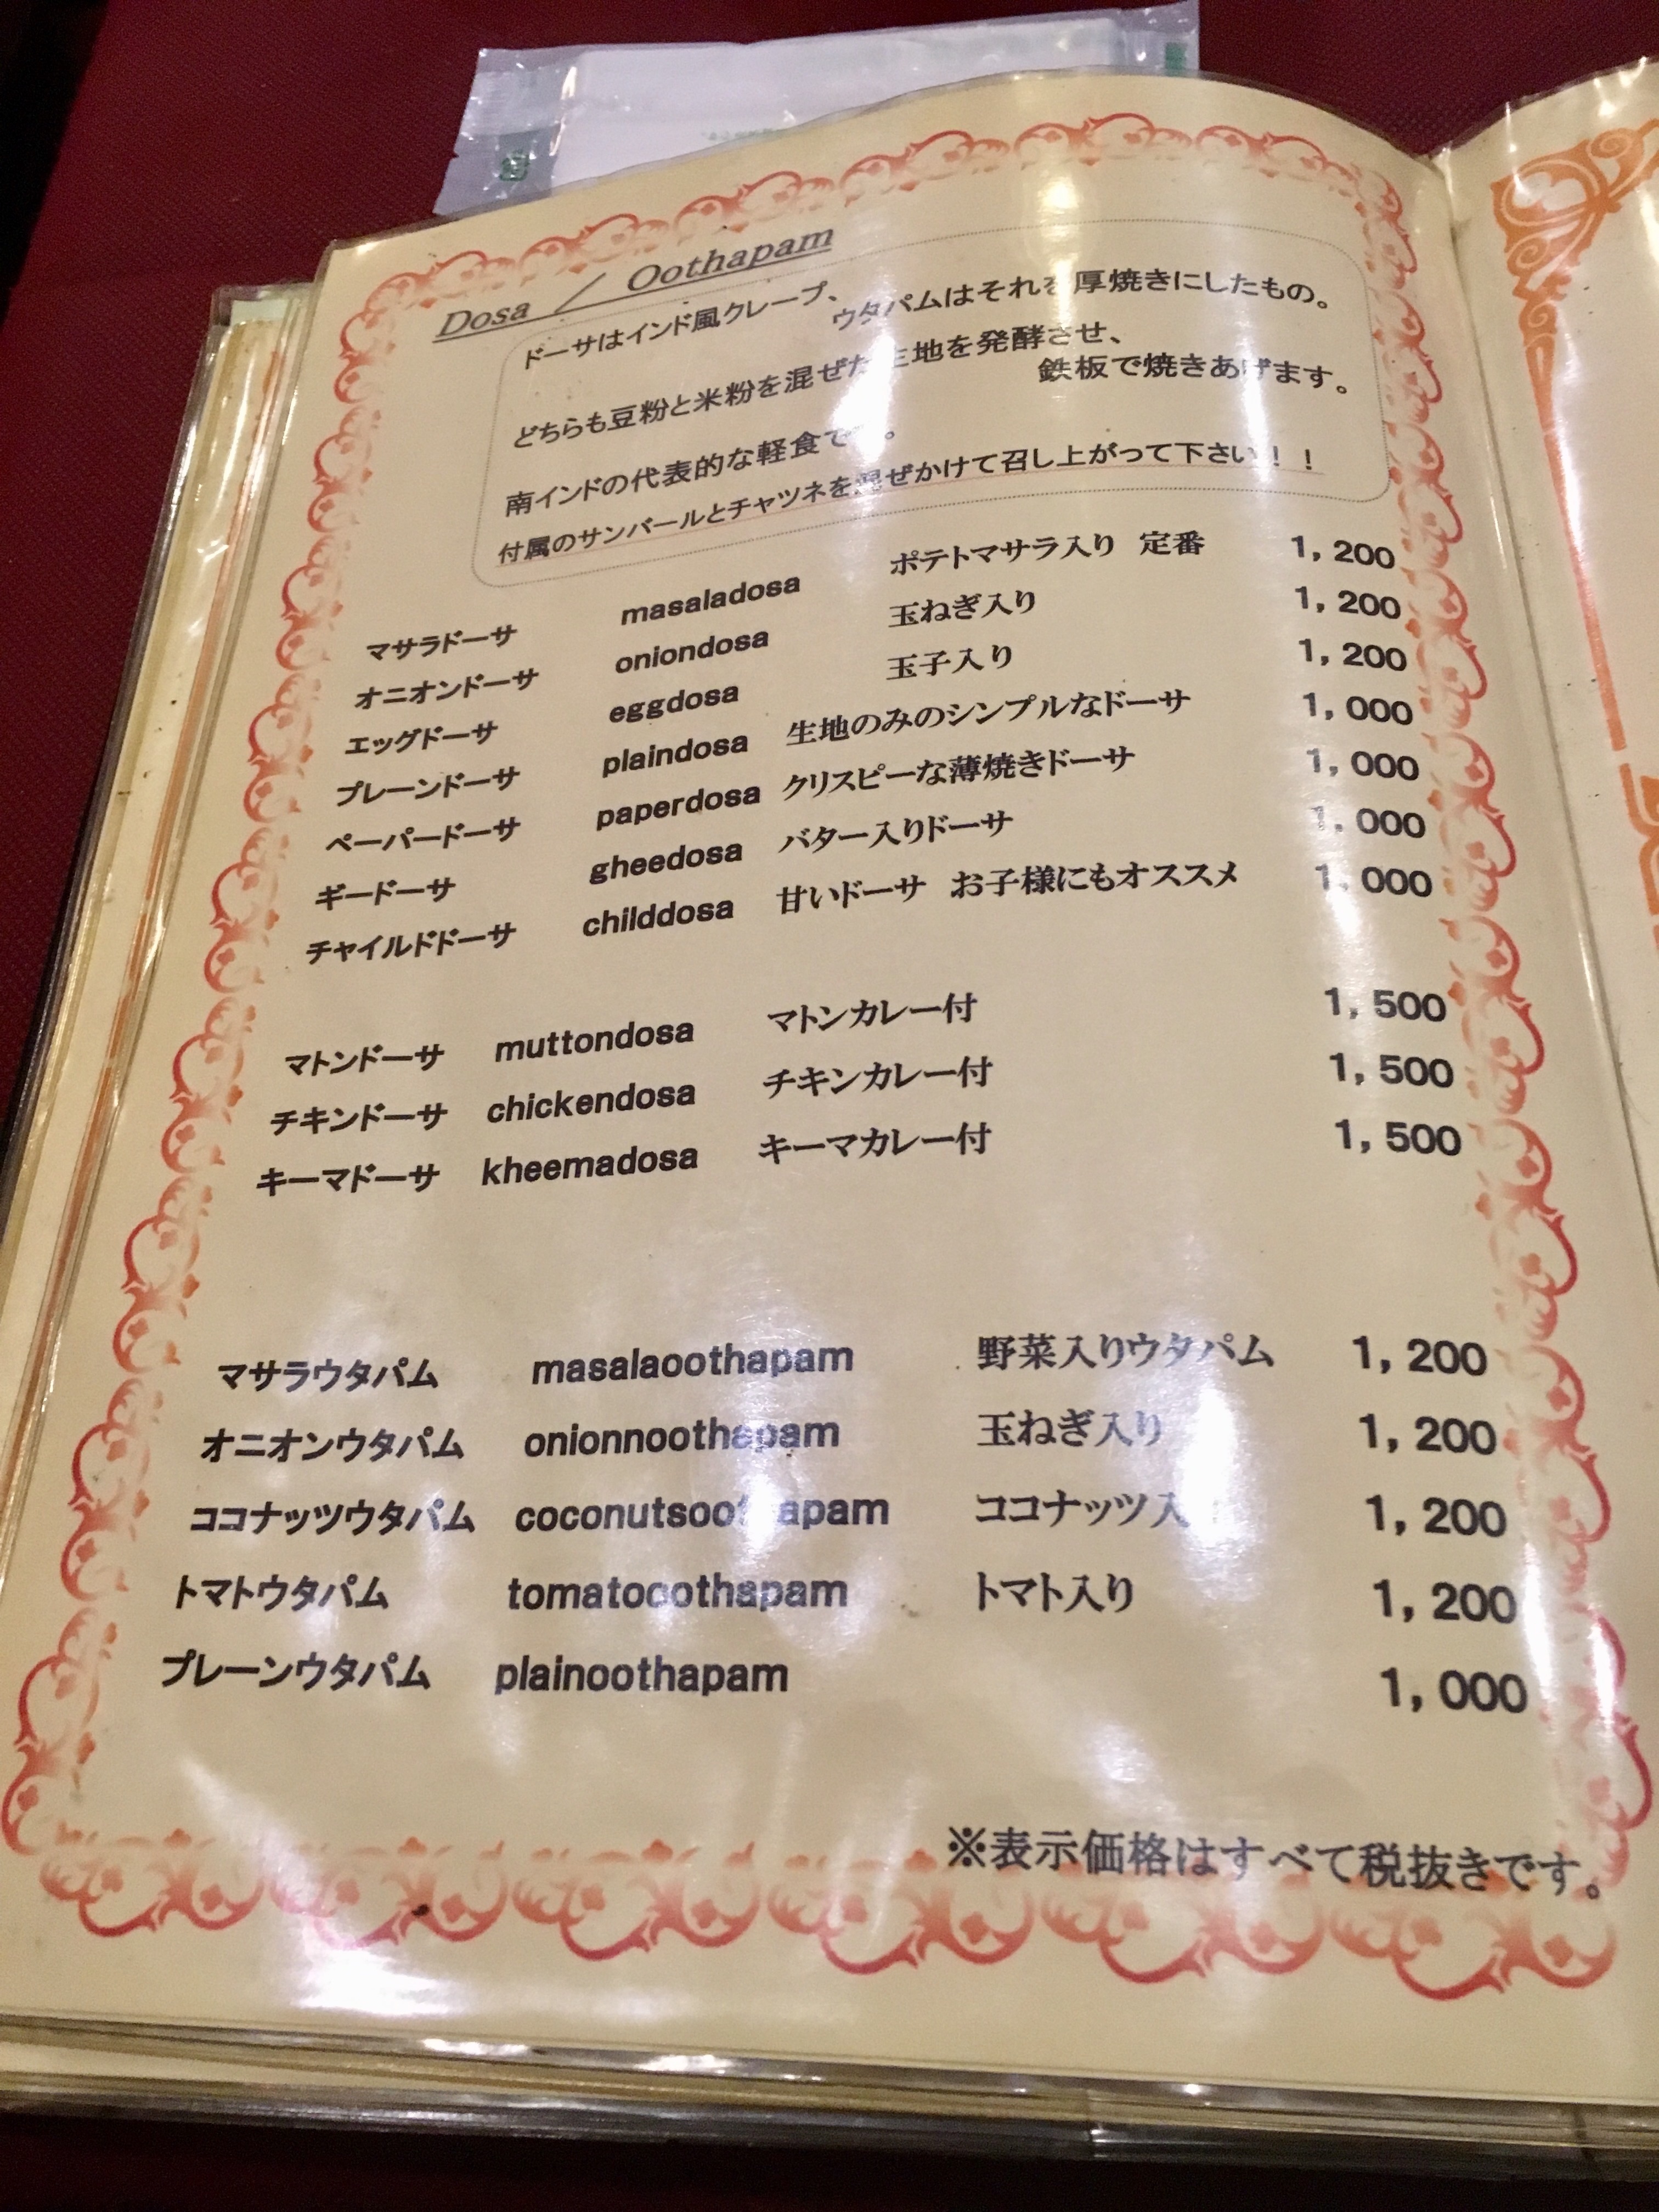 Dosa / Oothapam
ドーサはインド風クレープ、
ウタパムはそれを厚焼きにしたもの。
どちらも豆粉と米粉を混ぜた生地を発酵させ、
鉄板で焼きあげます。
南インドの代表的な軽食です。
付属のサンバールとチャツネを混ぜかけて召し上がって下さい！！
マサラドーサ masaladosa ポテトマサラ入り 定番 1,200
オニオンドーサ oniondosa 玉ねぎ入り 1,200
エッグドーサ eggdosa 玉子入り 1,200
プレーンドーサ plaindosa 生地のみのシンプルなドーサ 1,000
ペーパードーサ paperdosa クリスピーな薄焼きドーサ 1,000
ギードーサ gheedosa バター入りドーサ 1,000
チャイルドドーサ childdosa 甘いドーサ お子様にもオススメ 1,000
マトンドーサ muttondosa マトンカレー付 1,500
チキンドーサ chickendosa チキンカレー付 1,500
キーマドーサ kheemadosa キーマカレー付 1,500
マサラウタパム masalaoothapam 野菜入りウタパム 1,200
オニオンウタパム onionnoothapam 玉ねぎ入り 1,200
ココナッツウタパム coconutsoothapam ココナッツ入 1,200
トマトウタパム tomatooothapam トマト入り 1,200
プレーンウタパム plainoothapam 1,000
※表示価格はすべて税抜きです。